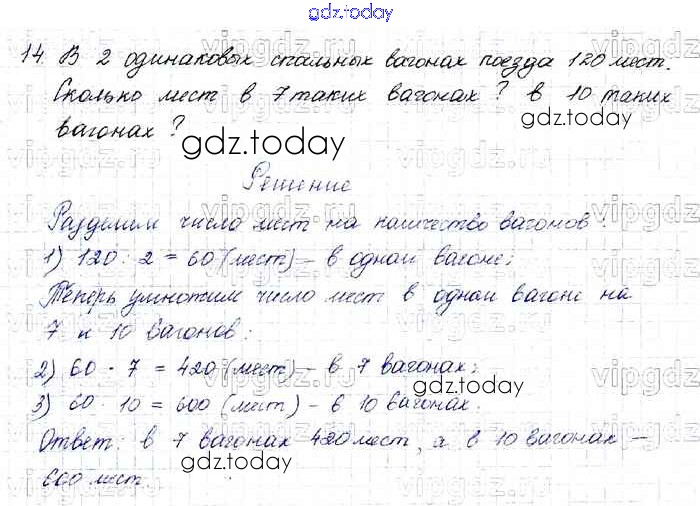 gdz.today
14. В 2 одинаковых спальных вагонах поезда 120 мест.
Сколько мест в 7 таких вагонах? в 10 таких
вагонах?
gdz.today
gdz.today
Решение
Разделим число мест на количество вагонов:
1) 120 : 2 = 60 (мест) – в одном вагоне;
Теперь умножим число мест в одном вагоне на
7 и 10 вагонов:
2) 60 · 7 = 420 (мест) – в 7 вагонах;
3) 60 · 10 = 600 (мест) – в 10 вагонах.
gdz.today
Ответ: в 7 вагонах 420 мест, а в 10 вагонах –
600 мест.
gdz.today